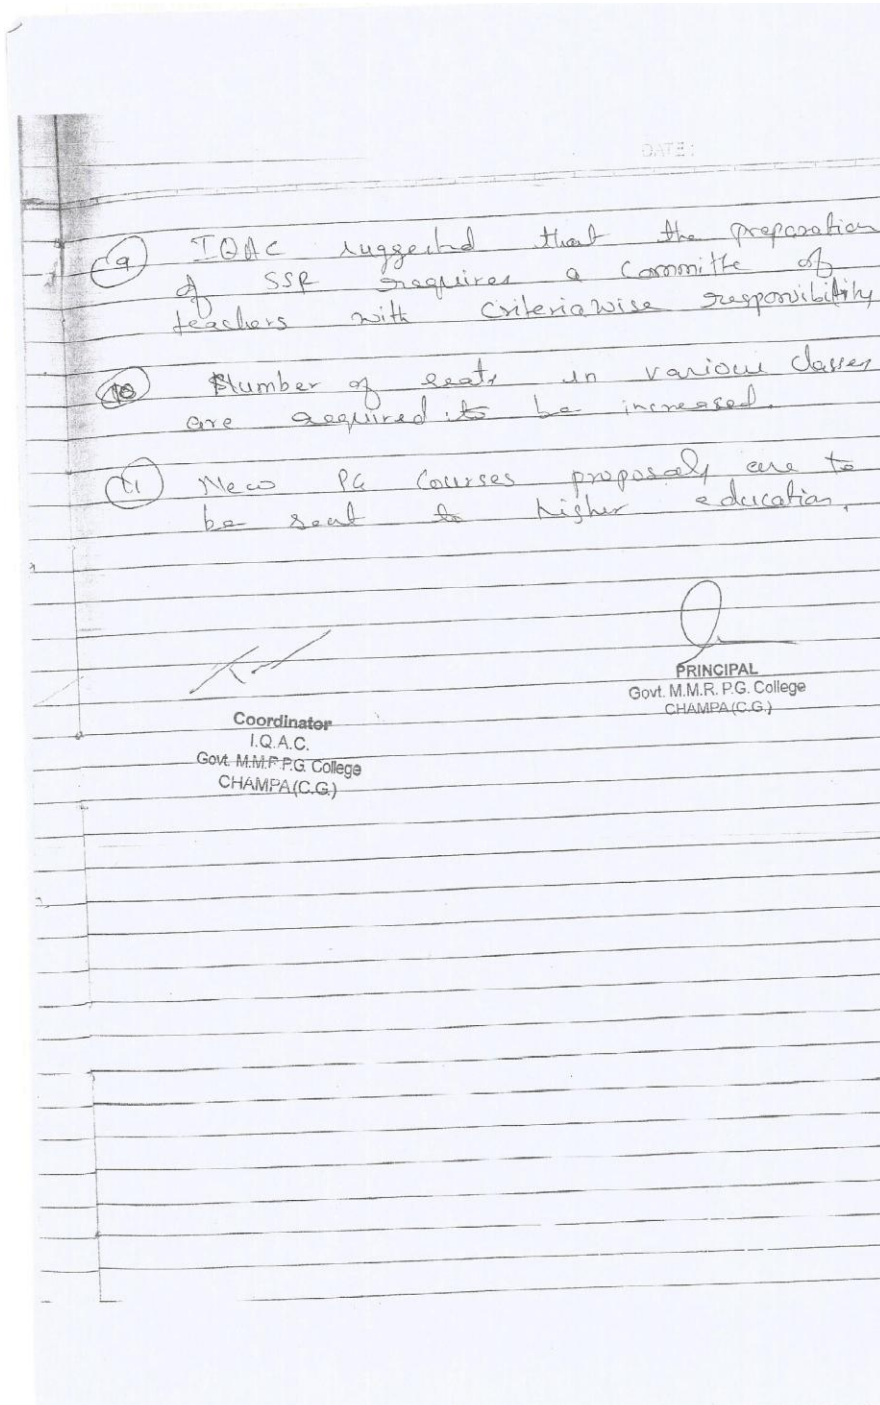 DATE :
9 IQAC suggested that the preparation
of SSR requires a Committe of
teachers with Criteriawise responsibility
10 Number of seats in various classes
are required to be increased.
11 New PG Courses proposals are to
be sent to higher education.
PRINCIPAL
Govt. M.M.R. P.G. College
CHAMPA (C.G.)
Coordinator
I.Q.A.C.
Govt. M.M.R P.G. College
CHAMPA (C.G.)